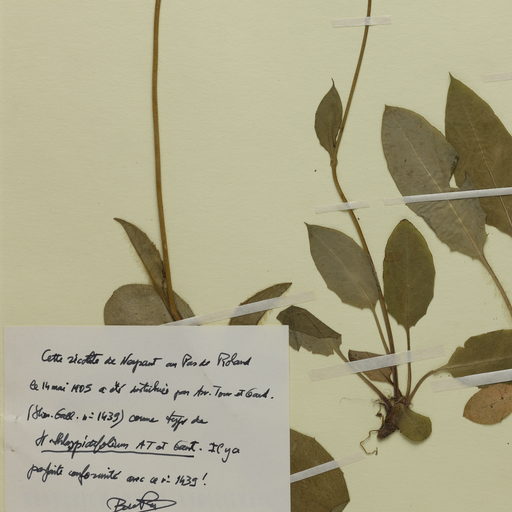 Cette récolte de Neyraut au Pas de Roland
le 14 mai 1905 a été distribuée par Arv. Touv et Gaut.
(Hier. Gall. n° 1439) comme type de
H. thlaspidifolium A.T. et Gaut. Il y a
parfaite conformité avec ce n° 1439 !